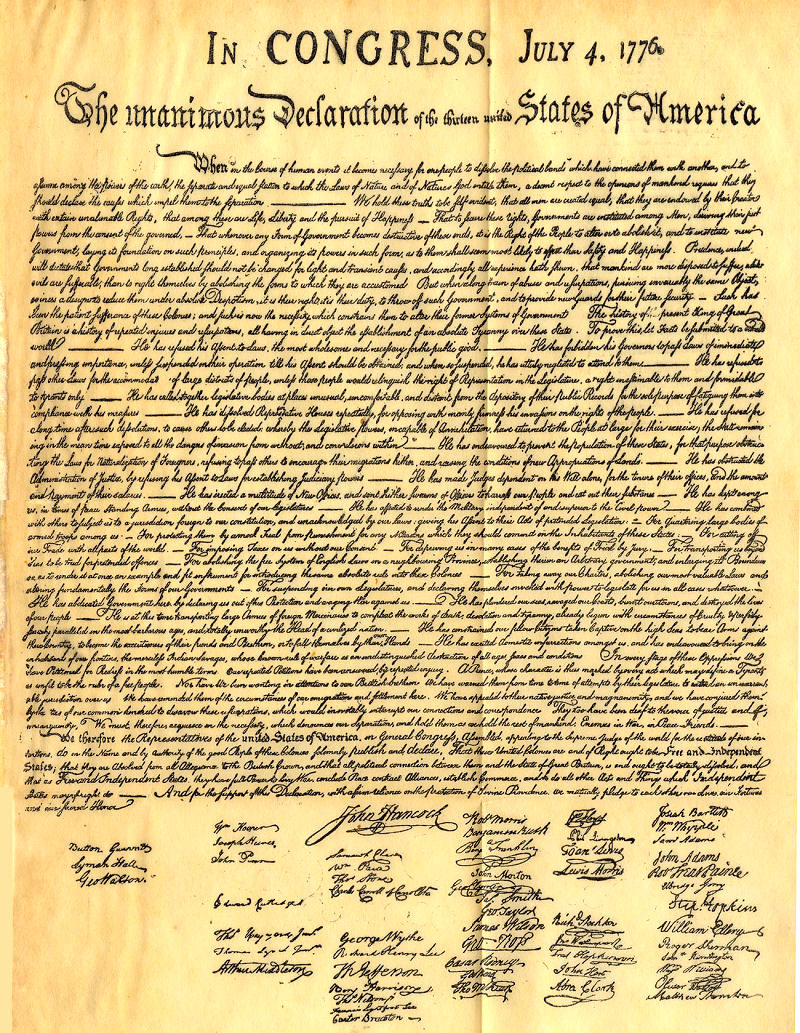 IN CONGRESS, JULY 4, 1776.
The unanimous Declaration of the thirteen united States of America
When in the Course of human events it becomes necessary for one people to dissolve the political bands which have connected them with another, and to
assume among the powers of the earth, the separate and equal station to which the Laws of Nature and of Nature's God entitle them, a decent respect to the opinions of mankind requires that they
should declare the causes which impel them to the separation. We hold these truths to be self evident, that all men are created equal, that they are endowed by their Creator
with certain unalienable Rights, that among these are Life, Liberty and the pursuit of Happiness — That to secure these rights, Governments are instituted among Men, deriving their just
powers from the consent of the governed, — That whenever any Form of Government becomes destructive of these ends, it is the Right of the People to alter or to abolish it, and to institute new
Government, laying its foundation on such principles, and organizing its powers in such form, as to them shall seem most likely to effect their Safety and Happiness. Prudence, indeed,
will dictate that Governments long established should not be changed for light and transient causes, and accordingly all experience hath shewn, that mankind are more disposed to suffer, while
evils are sufferable, than to right themselves by abolishing the forms to which they are accustomed But when a long train of abuses and usurpations, pursuing invariably the same Object,
evinces a design to reduce them under absolute Despotism, it is their right, it is their duty, to throw off such Government, and to provide new Guards for their future security — Such has
been the patient sufferance of these Colonies; and such is now the necessity which constrains them to alter their former Systems of Government The history of present King of Great
Britain is a history of repeated injuries and usurpations, all having in direct object the establishment of an absolute Tyranny over these States. To prove this, let Facts be submitted to a
world He has refused his Assent to Laws, the most wholesome and necessary for the public good. He has forbidden his Governors to pass Laws of immediate
and pressing importance, unless suspended in their operation till his Assent should be obtained; and when so suspended, he has utterly neglected to attend to them He has refused to
pass other Laws for the of large districts of people, unless those people would relinquish the right of Representation in the Legislature, a right inestimable to them and formidable
to tyrants only He has called together legislative bodies at places unusual, uncomfortable, and distant from the depository of their public Records for the sole purpose of fatiguing them into
compliance with his measures He has dissolved Representative Houses repeatedly, for opposing with manly firmness his invasions on the rights of the people. He has refused for
a long time after such dissolutions, to cause others to be elected; whereby the legislative powers, incapable of Annihilation, have returned to the People at large for their exercise; the State remain
ing in the mean time exposed to all the dangers of invasion from without, and convulsions within He has endeavoured to prevent the population of these States; for that purpose obstruc
ting the Laws for Naturalization of Foreigners, refusing to pass others to encourage their migrations hither, and raising the conditions of new Appropriations of Lands. He has obstructed the
Administration of Justice, by refusing his Assent to Laws for establishing Judiciary powers He has made Judges dependent on his Will alone, for the tenure of their offices, and the amount
and payment of their salaries. He has erected a multitude of New Offices, and sent hither swarms of Officers to harass our people and eat out their substance He has kept among
us, in times of peace Standing Armies, without the Consent of our legislatures He has affected to render the Military independent of and superior to the Civil power He has combined
with others to subject us to a jurisdiction foreign to our constitution, and unacknowledged by our laws; giving his Assent to their Acts of pretended Legislation: — For Quartering large bodies of
armed troops among us — For protecting them by a mock Trial from punishment for any Murders which they should commit on the Inhabitants of these States For cutting off
our Trade with all parts of the world. — For imposing Taxes on us without our Consent — For depriving us in many cases of the benefits of Trial by Jury. — For transporting us beyond
Seas to be tried for pretended offences — For abolishing the free System of English Laws in a neighbouring Province, establishing therein an Arbitrary government, and enlarging its Boundaries
so as to render it at once an example and fit instrument for introducing the same absolute rule into these Colonies For taking away our Charters, abolishing our most valuable Laws and
altering fundamentally the Forms of our Governments — For suspending our own Legislatures, and declaring themselves invested with power to legislate for us in all cases whatsoever.
He has abdicated Government here by declaring us out of his Protection and waging War against us He has plundered our seas, ravaged our Coasts, burnt our towns, and destroyed the lives
of our people He is at this time transporting large Armies of foreign Mercenaries to compleat the works of death, desolation and tyranny, already begun with circumstances of Cruelty & perfidy
scarcely paralleled in the most barbarous ages, and totally unworthy the Head of a civilized nation. He has constrained our fellow Citizens taken Captive on the high Seas to bear Arms against
their Country, to become the executioners of their friends and Brethren, or to fall themselves by their Hands He has excited domestic insurrections amongst us, and has endeavoured to bring on the
inhabitants of our frontiers, the merciless Indian Savages, whose known rule of warfare is an undistinguished destruction of all ages, sexes and conditions In every stage of these Oppressions We
have Petitioned for Redress in the most humble terms Our repeated Petitions have been answered by repeated injury. A Prince, whose character is thus marked by every act which may define a Tyrant
is unfit to be the ruler of a free people. Nor have We been wanting in attentions to our British brethren We have warned them from time to time of attempts by their legislature to extend an unwarrant
able jurisdiction over us We have reminded them of the circumstances of our emigration and settlement here. We have appealed to their native justice and magnanimity, and we have conjured them
by the ties of our common kindred to disavow these usurpations, which would inevitably interrupt our connections and correspondence They too have been deaf to the voice of justice and of
consanguinity. We must, therefore, acquiesce in the necessity, which denounces our Separation, and hold them, as we hold the rest of mankind, Enemies in War, in Peace Friends.
We therefore the Representatives of the united States of America, in General Congress, Assembled, appealing to the Supreme Judge of the world for the rectitude of our in
tentions, do, in the Name and by authority of the good People of these Colonies solemnly publish and declare, That these United Colonies are and of Right ought to be Free and Independent
States; that they are Absolved from all Allegiance to the British Crown, and that all political connection between them and the State of Great Britain, is and ought to be totally dissolved; and
that as Free and Independent States, they have full Power to levy War, conclude Peace contract Alliances, establish Commerce, and to do all other Acts and Things which Independent
States may of right do And for the support of this Declaration, with a firm reliance on the Protection of Divine Providence, we mutually pledge to each other our Lives, our Fortunes
and our sacred Honor
Button Gwinnett
Lyman Hall
Geo Walton.
Wm Hooper
Joseph Hewes
John Penn
Edward Rutledge
Arthur Middleton
John Hancock
Samuel Chase
Wm Paca
Thos Stone
Charles Carroll of Carrollton
George Wythe
Richard Henry Lee
Th Jefferson
Benj Harrison
Thos Nelson jr
Francis Lightfoot Lee
Carter Braxton
Robt Morris
Benjamin Rush
Benj Franklin
John Morton
Geo Clymer
Jas Smith
Geo Taylor
James Wilson
Geo Ross
Caesar Rodney
Geo Read
Tho M:Kean
Lewis Morris
Richd Stockton
John Hart
Abra Clark
Josiah Bartlett
Wm Whipple
Saml Adams
John Adams
Robt Treat Paine
Elbridge Gerry
Step Hopkins
William Ellery
Roger Sherman
Saml Huntington
Wm Williams
Oliver Wolcott
Matthew Thornton